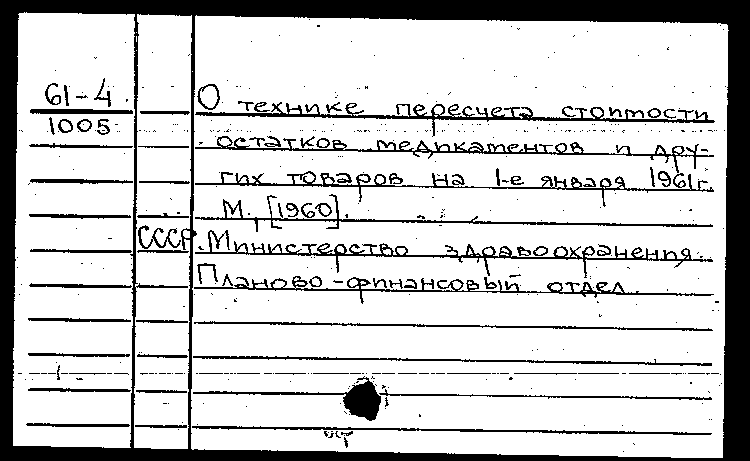 61-4
1005
О технике пересчета стоимости
остатков медикаментов и дру-
гих товаров на 1-е января 1961г.
М., [1960].
СССР. Министерство здравоохранения.
Планово-финансовый отдел.